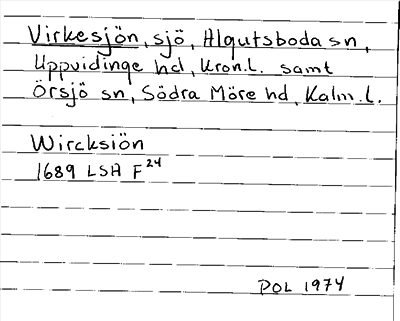 Virkesjön, sjö, Algutsboda sn,
Uppvidinge hd, Kron.l. samt
Örsjö sn, Södra Möre hd, Kalm.l.
Wircksiön
1689 LSA F24
POL 1974